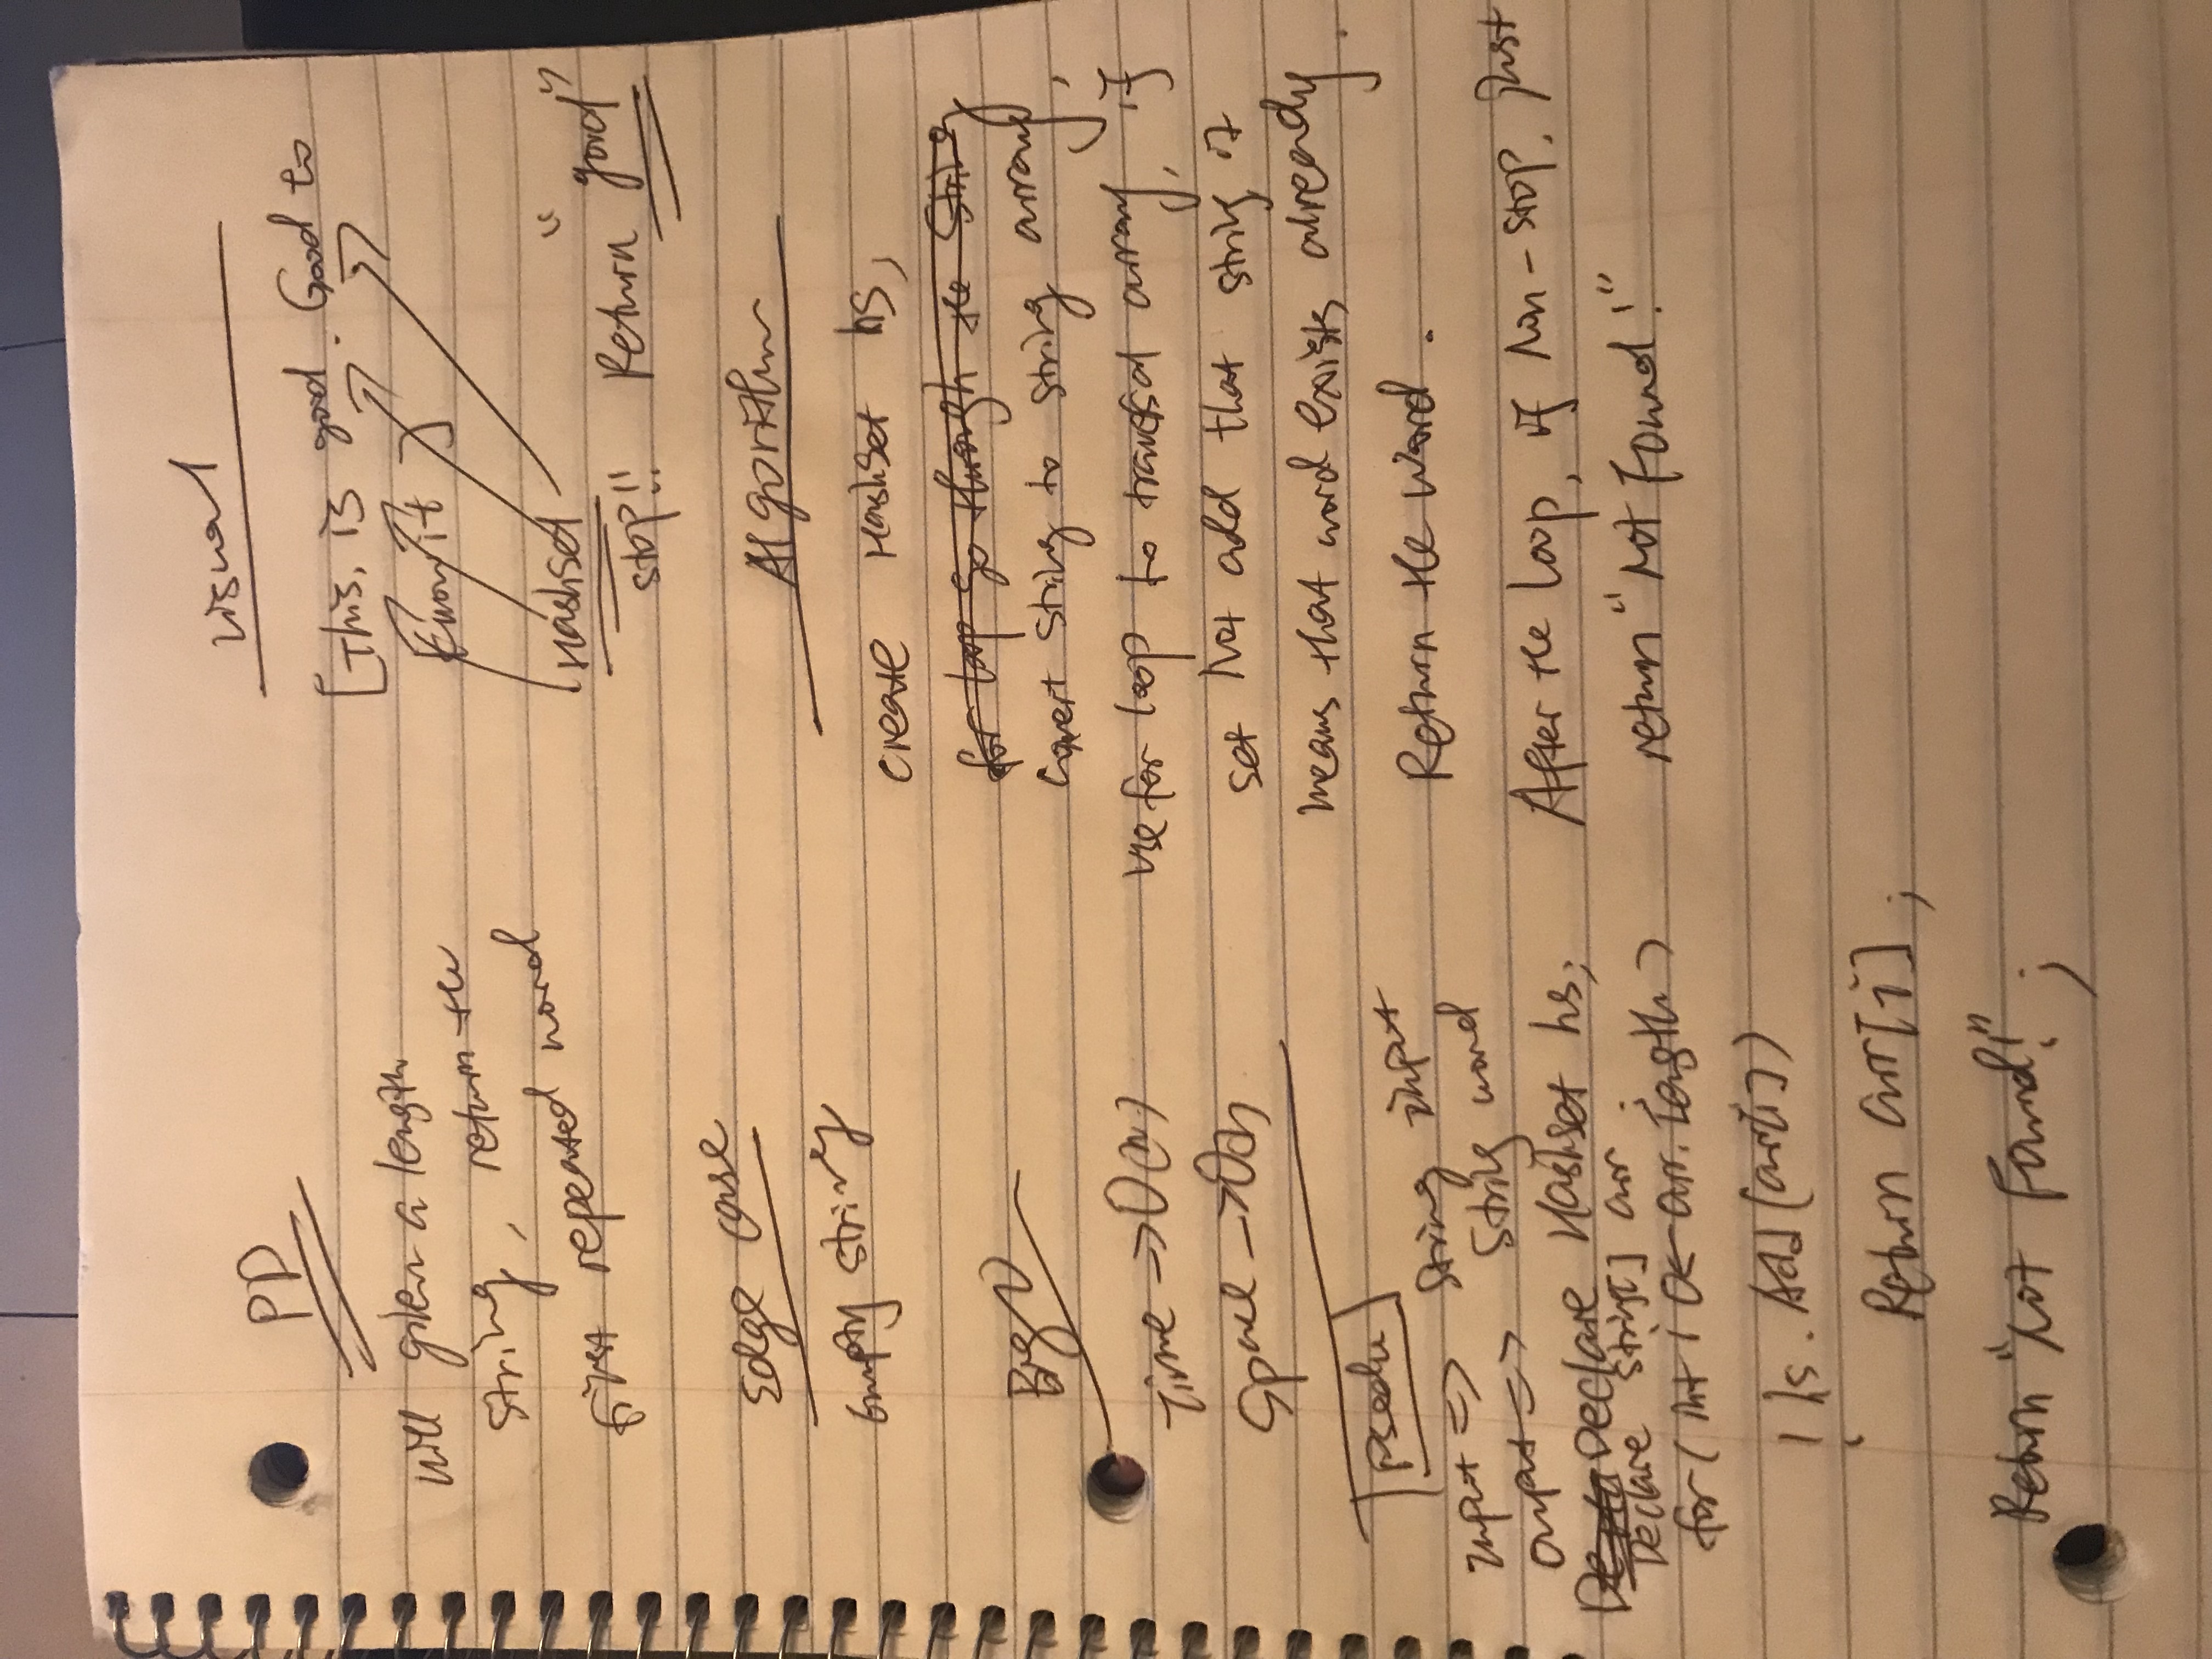 PD
will given a length
string, return the
first repeated word
Edge case
Empty string
Big O
Time -> O(n)
Space -> O(n)
Psedu
Input => String input
Output => String word
Declare Hashset hs;
Declare String[] arr;
for (int i 0<- arr.Length)
! hs.Add(arr[i])
Return arr[i];
Return "Not Found!";
Visual
[This, is good. Good to
know it]
HashSet
stop!! Return "good"
Algorithm
create HashSet hs,
for loop go through the String
covert string to string array,
use for loop to traversal array, if
set not add that string, it
means that word exists already.
Return the word.
After the loop, if non-stop, just
return "Not Found!"